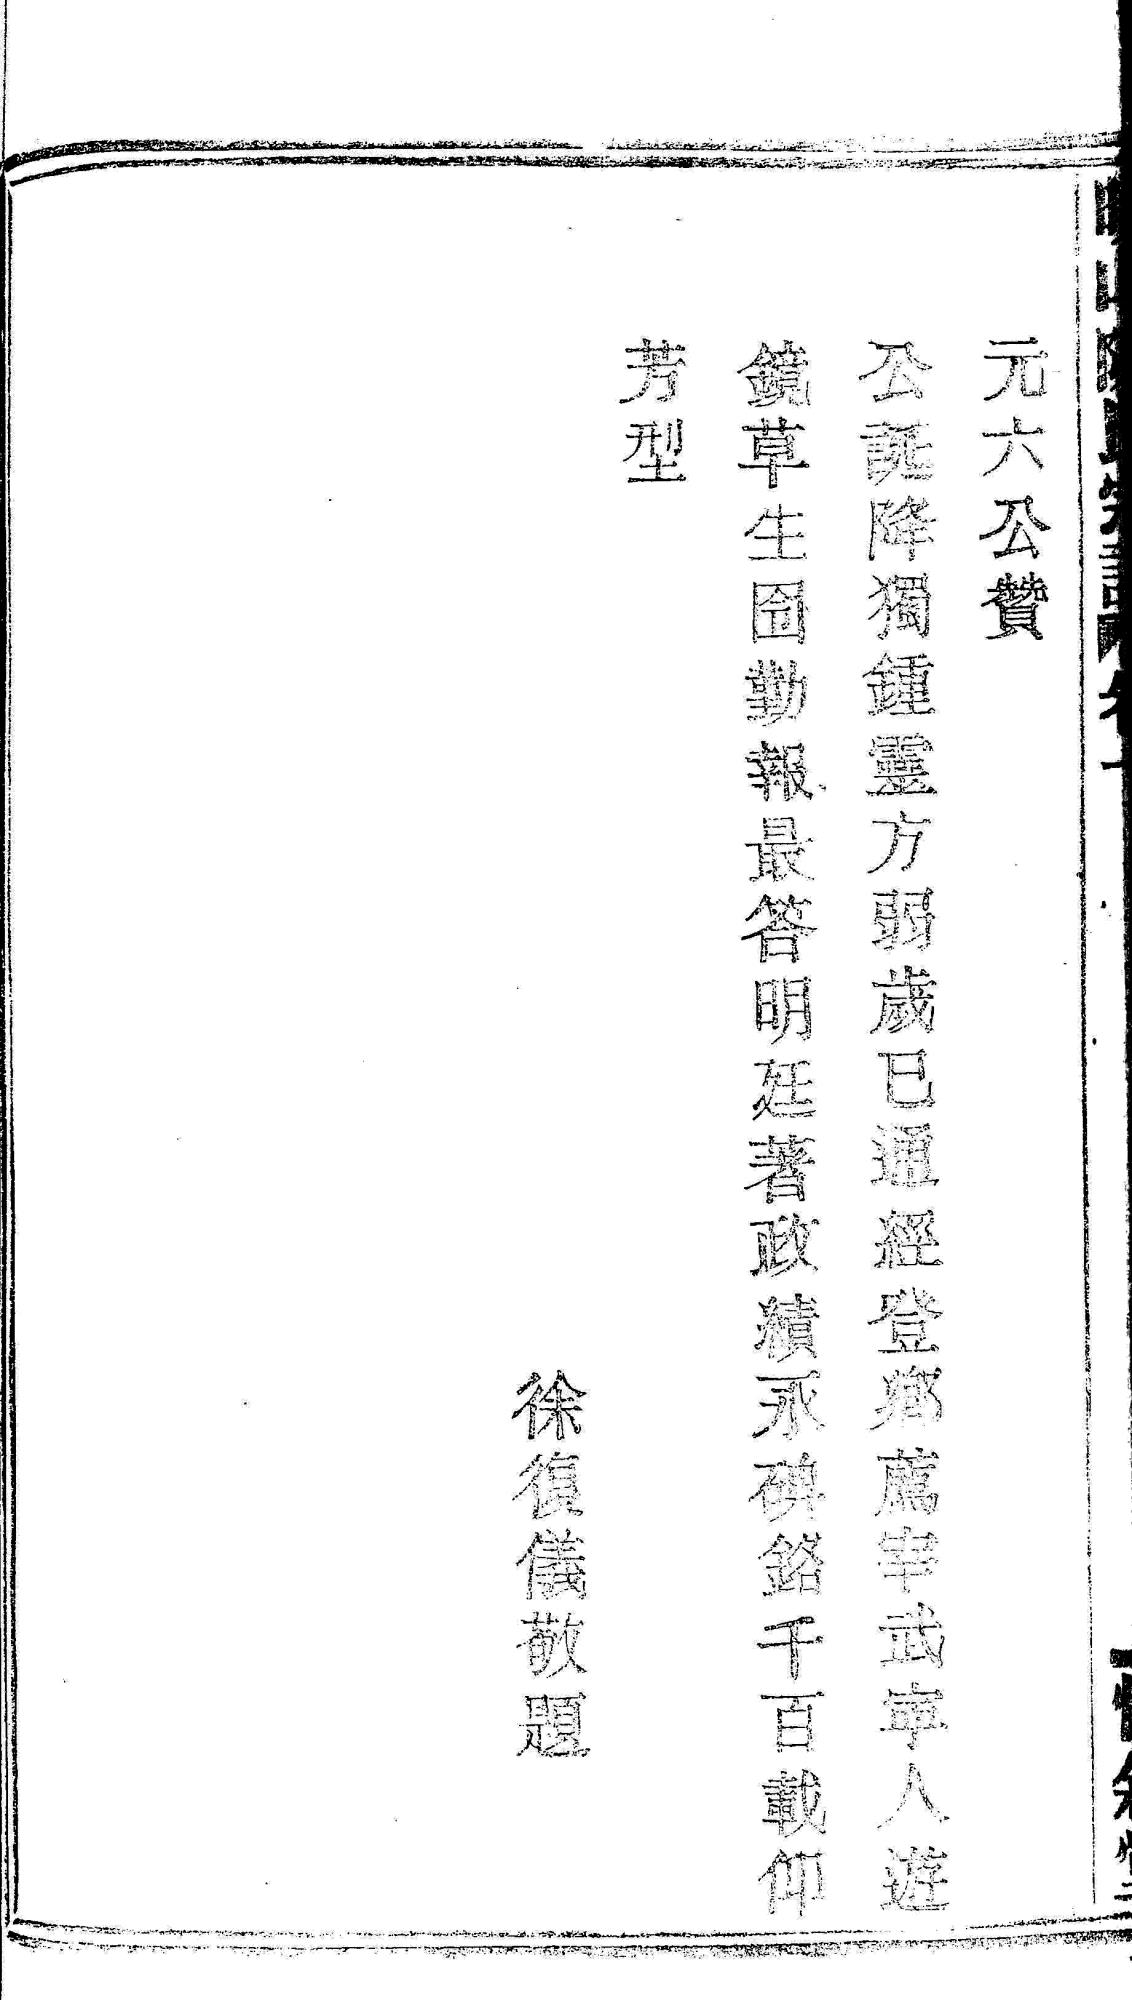 元六公贊
公誕降獨鍾靈方弱歲已通經登鄉薦宰武寧人遊
鏡草生囹勤報最答明廷著政績永碑銘千百載仰
芳型
徐復儀敬題